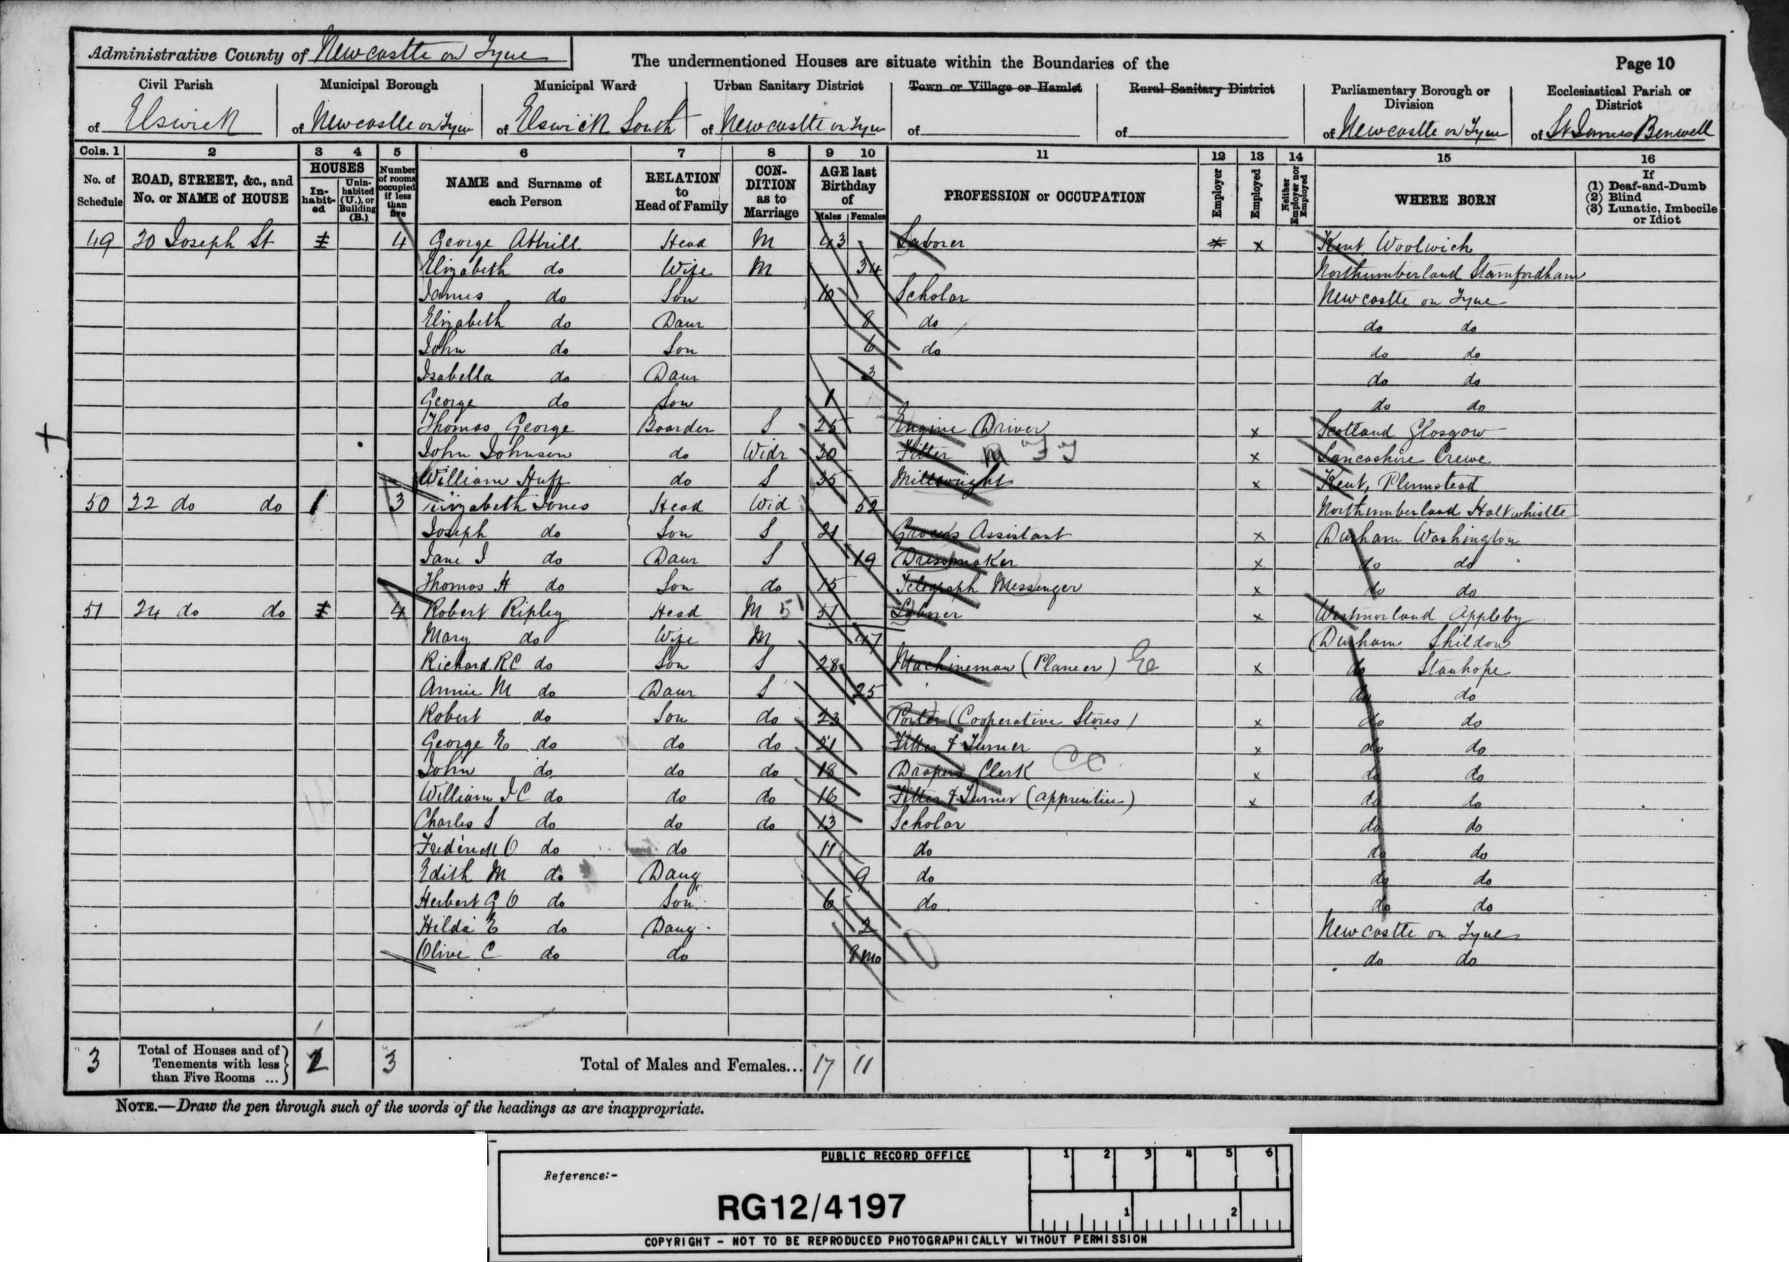 Administrative County of Newcastle on Tyne
The undermentioned Houses are situate within the Boundaries of the
Page 10
Civil Parish of Elswick
Municipal Borough of Newcastle on Tyne
Municipal Ward of Elswick South
Urban Sanitary District of Newcastle on Tyne
Town or Village or Hamlet of
Rural Sanitary District of
Parliamentary Borough or Division of Newcastle on Tyne
Ecclesiastical Parish or District of St James Benwell
Cols. 1 2 3 4 5 6 7 8 9 10 11 12 13 14 15 16
No. of Schedule
ROAD, STREET, &c., and No. or NAME of HOUSE
HOUSES
In-habit-ed
Unin-habited (U.), or Building (B.)
Number of rooms occupied if less than five
NAME and Surname of each Person
RELATION to Head of Family
CON-DITION as to Marriage
AGE last Birthday of
Males Females
PROFESSION or OCCUPATION
Employer
Employed
Neither Employer nor Employed
WHERE BORN
If
(1) Deaf-and-Dumb
(2) Blind
(3) Lunatic, Imbecile or Idiot
49 20 Joseph St 4 George Attrill Head M 43 Laborer x x Kent Woolwich
Elizabeth do Wife M 34 Northumberland Stamfordham
James do Son 10 Scholar Newcastle on Tyne
Elizabeth do Daur 8 do do do
John do Son 6 do do do
Isabella do Daur 3 do do
George do Son 1 do do
Thomas George Boarder S 25 Engine Driver x Scotland Glasgow
John Johnson do Widr 30 Fitter x Lancashire Crewe
William Huff do S 35 Millwright x Kent, Plumstead
50 22 do do 1 3 Elizabeth Jones Head Wid 52 Northumberland Haltwhistle
Joseph do Son S 21 Grocers Assistant x Durham Washington
Jane I do Daur S 19 Dressmaker x do do
Thomas H do Son do 15 Telegraph Messenger x do do
51 24 do do 4 Robert Ripley Head M 51 Laborer x Westmorland Appleby
Mary do Wife M 47 Durham Shildon
Richard R C do Son S 28 Machineman (Planeer) x do Stanhope
Annie M do Daur S 25 do do
Robert do Son do 23 Porter (Cooperative Stores) x do do
George E do do do 21 Fitter & Turner x do do
John do do do 18 Drapers Clerk CC x do do
William J C do do do 16 Fitter & Turner (apprentice) x do do
Charles S do do do 13 Scholar do do
Frederick O do do 11 do do do
Edith M do Daug 9 do do do
Herbert G O do Son 6 do do do
Hilda E do Daug 2 Newcastle on Tyne
Olive C do do 9 mo do do
3 Total of Houses and of Tenements with less than Five Rooms ... 2 3 Total of Males and Females... 17 11
NOTE.—Draw the pen through such of the words of the headings as are inappropriate.
PUBLIC RECORD OFFICE
1 2 3 4 5 6
Reference:-
RG12/4197
1 2
COPYRIGHT - NOT TO BE REPRODUCED PHOTOGRAPHICALLY WITHOUT PERMISSION